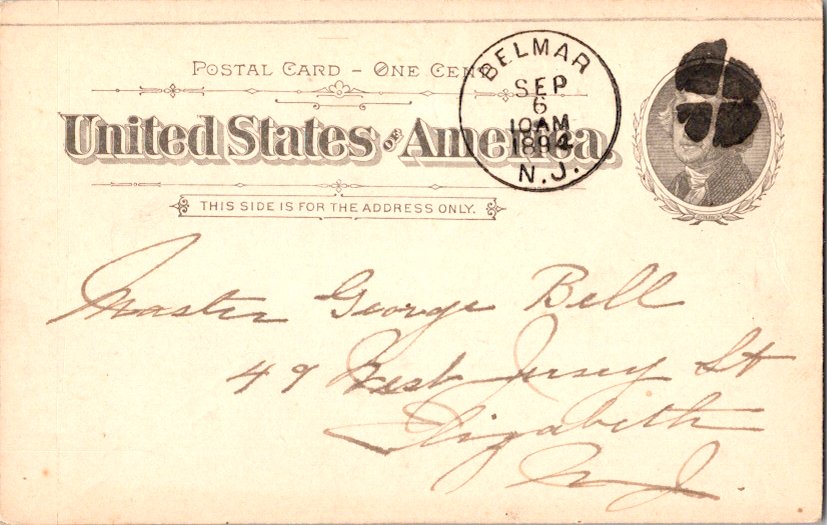 POSTAL CARD - ONE CENT
United States of America.
THIS SIDE IS FOR THE ADDRESS ONLY.
BELMAR
SEP
6
10AM
1894
N.J.
Master George Bell
49 West Jersey St
Elizabeth
N J.